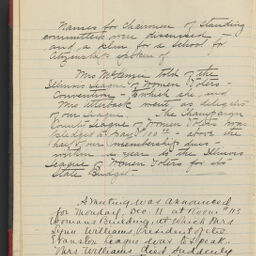 Names for chairmen of standing
committees were discussed -
and a plan for a school for
Citizenship spoken of
Mrs McKemon told of the
Illinois League of Women Voters -
Convention - to which she and
Mrs Utterback went as delegates
of our League - The Champaign
County League of Women Voters was
pledged to pay $100.00 - above the
half of our membership dues -
within a year to the Illinois
League of Women Voters for its
State Budget -
A meeting was announced
for Monday, Dec. 11 at Room 113
Woman's Building, at which Mrs.
Lynn Williams President of the
Evanston League was to speak.
Mrs Williams died suddenly